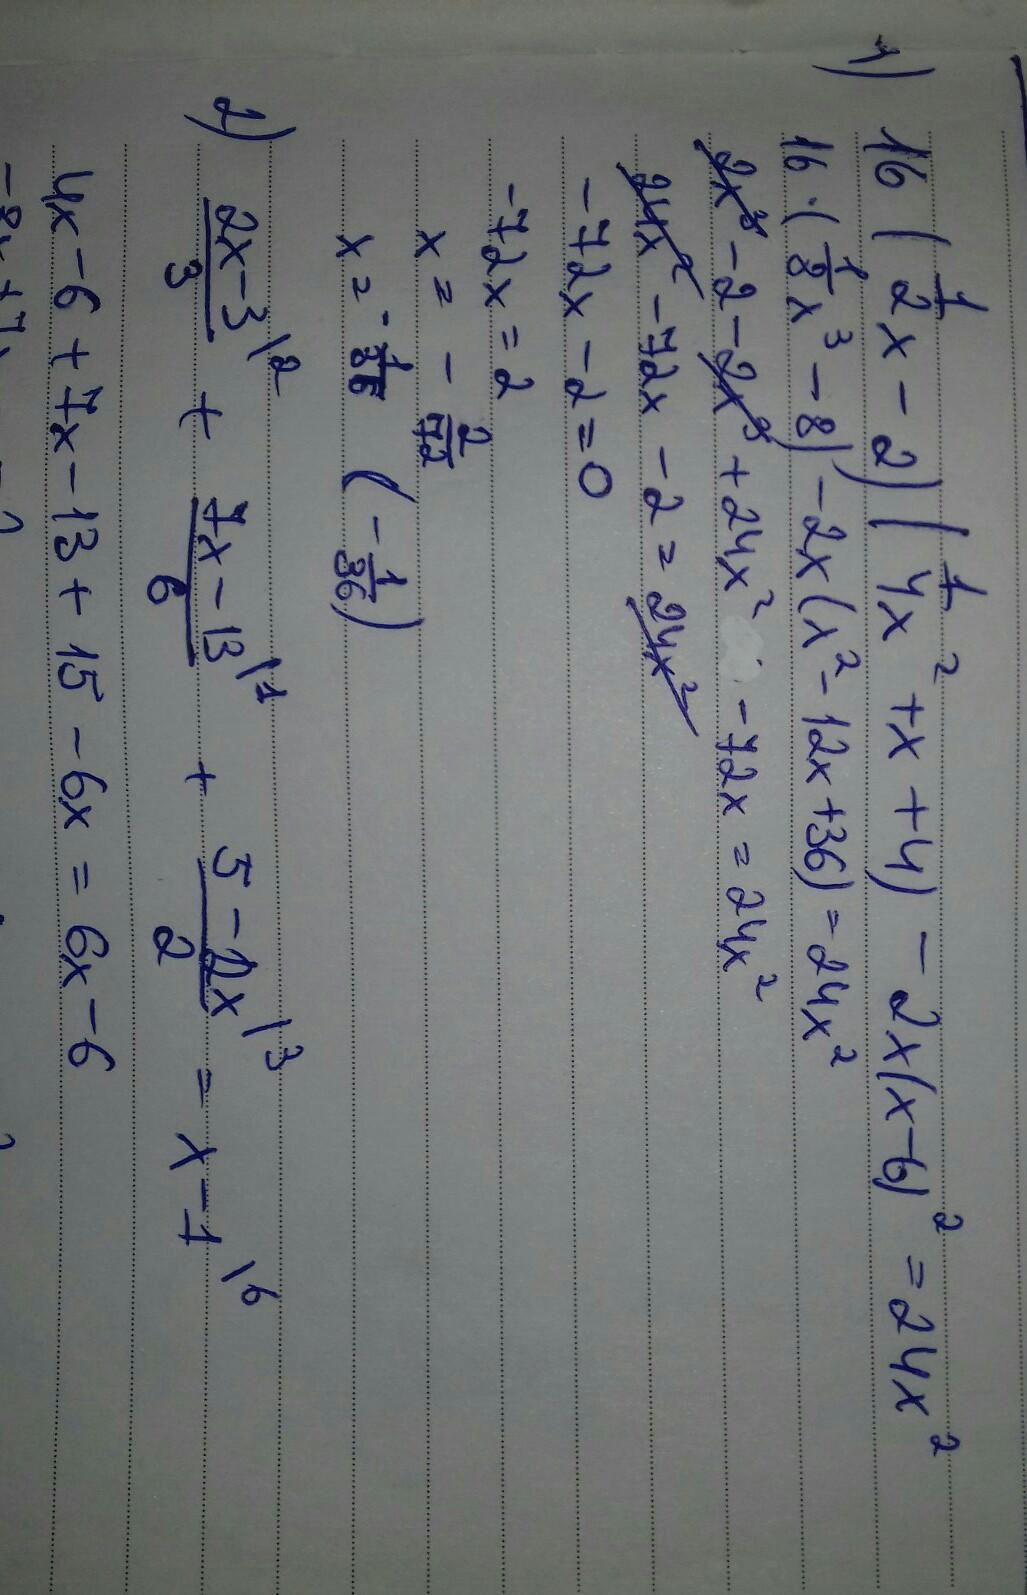 1) 16(1/2x-2)(1/4x²+x+4)-2x(x-6)²=24x²
16·(1/8x³-8)-2x(x²-12x+36)=24x²
2x³-2-2x³+24x²-72x=24x²
24x²-72x-2=24x²
-72x-2=0
-72x=2
x=-2/72
x=-1/36 (-1/36)
2) 2x-3/3 |2 + 7x-13/6 |1 + 5-2x/2 |3 = x-1 |6
4x-6+7x-13+15-6x=6x-6